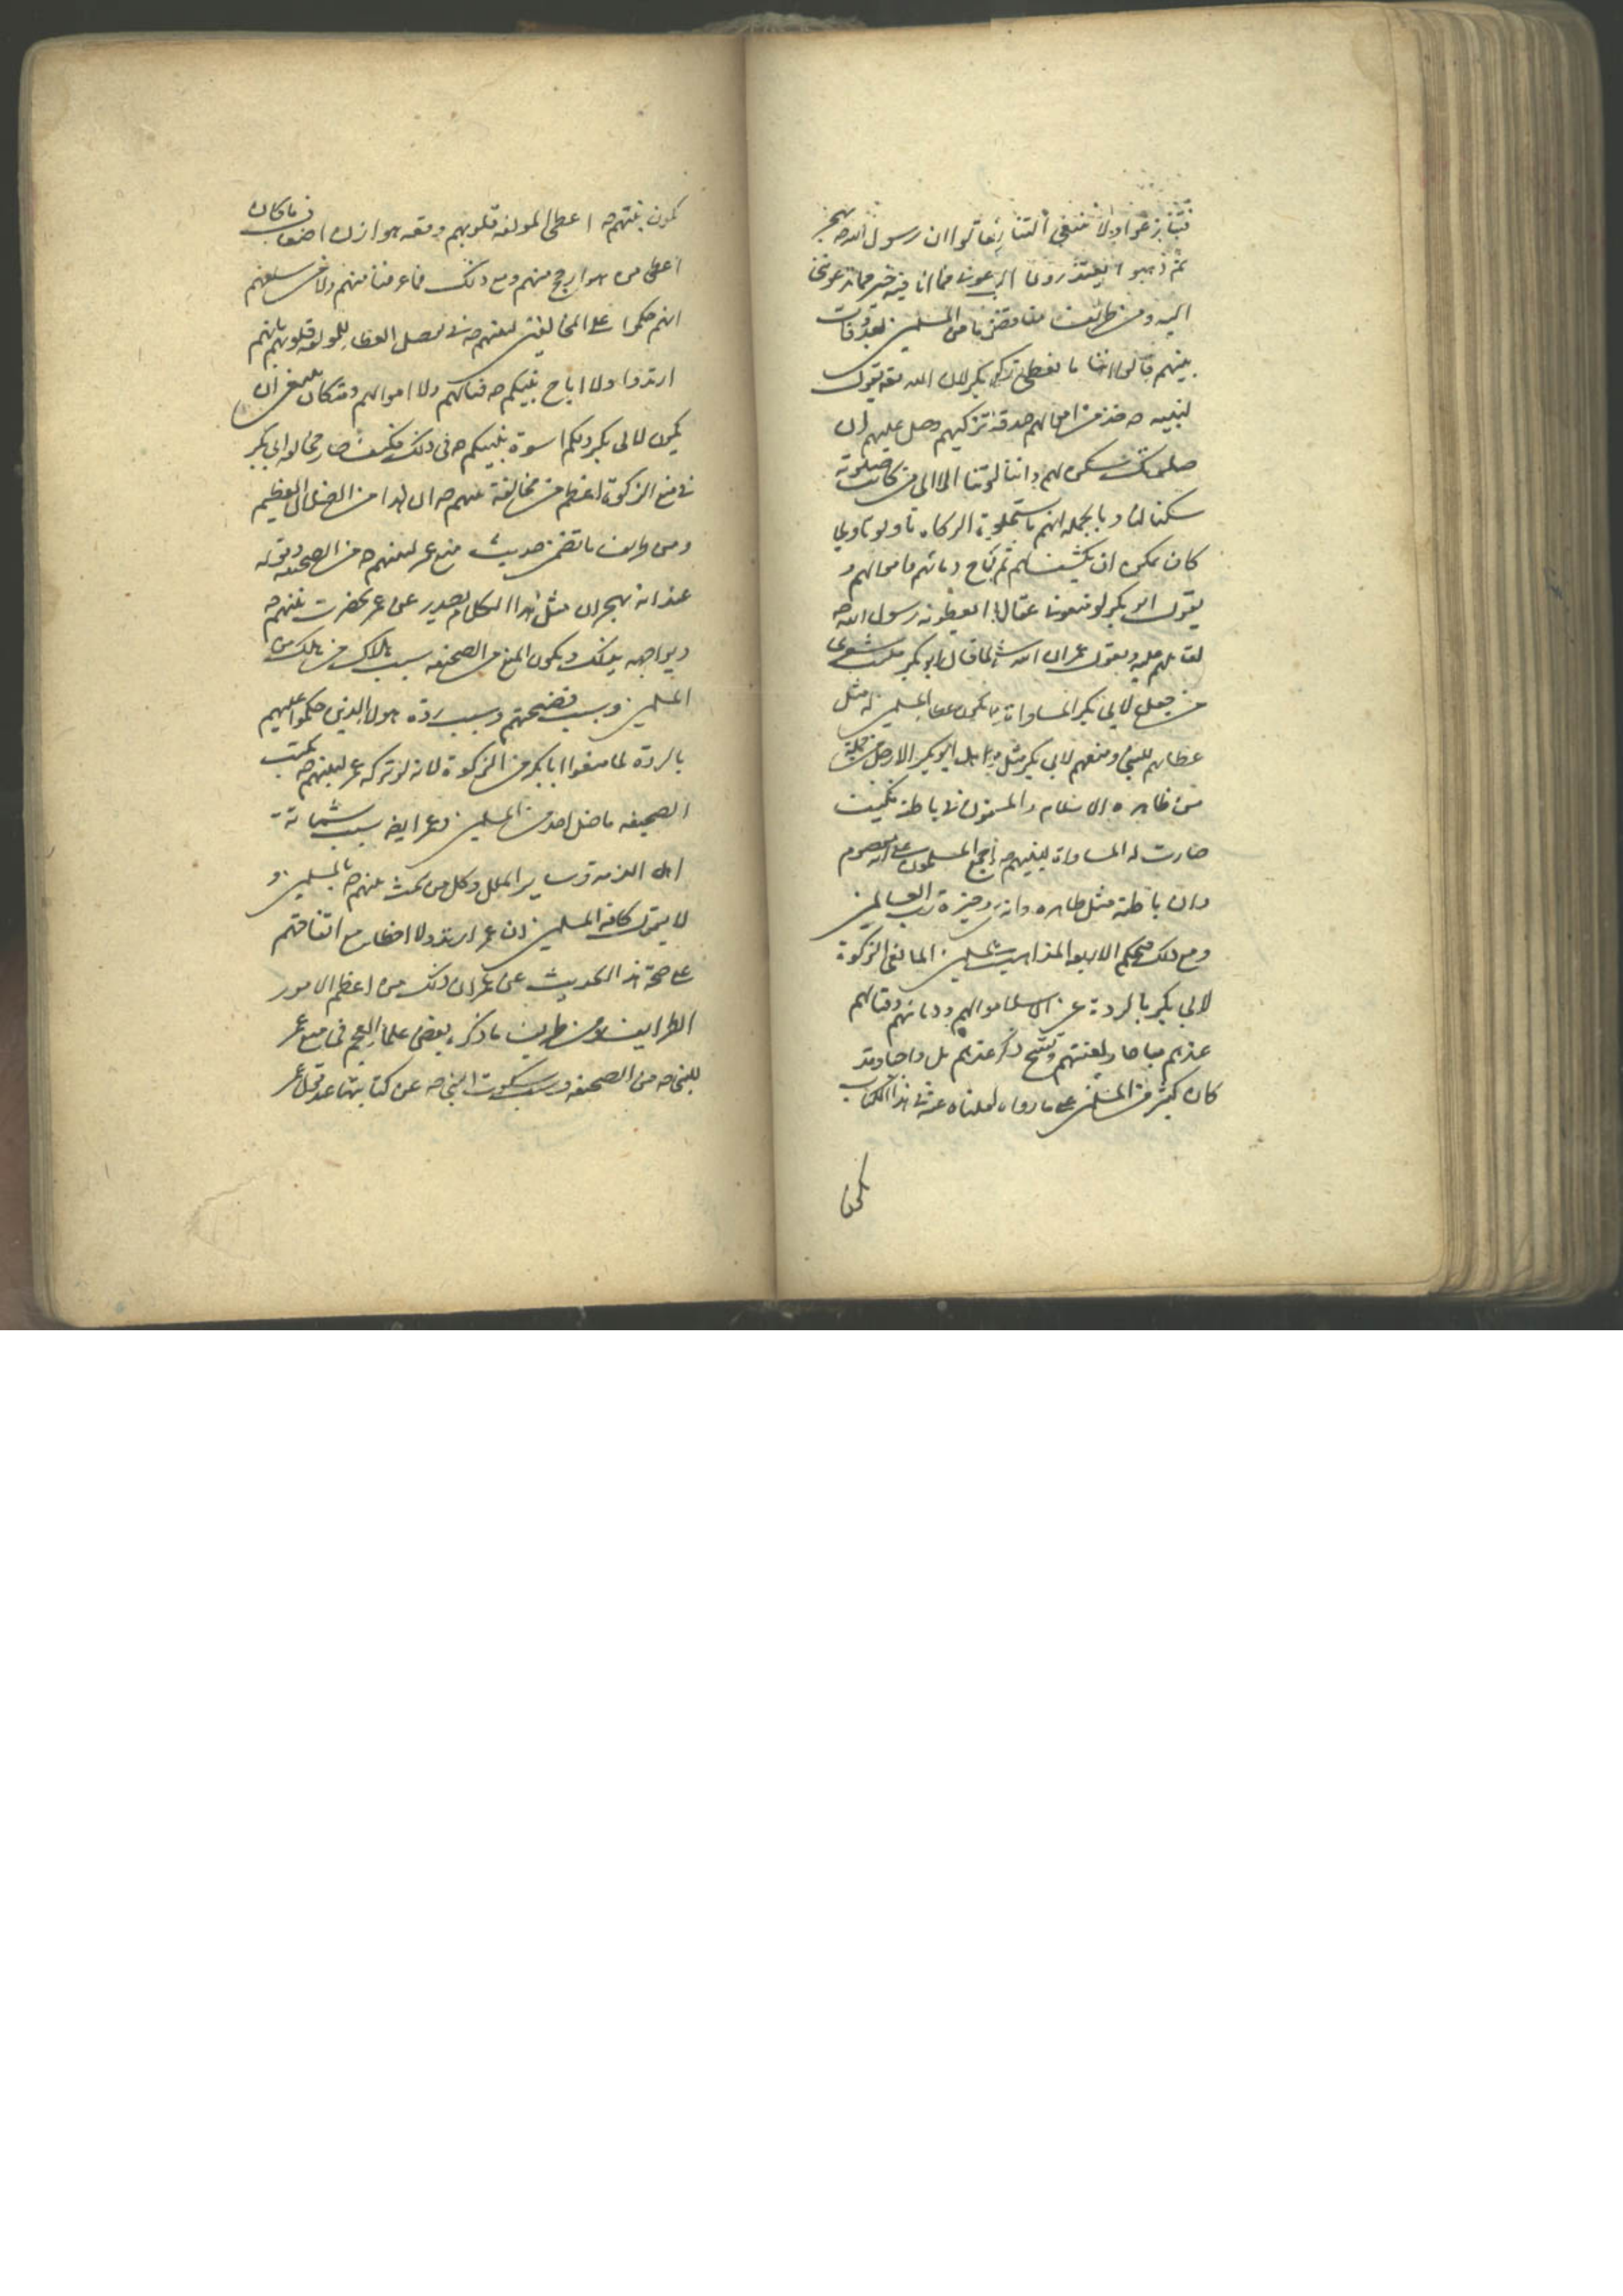 فتنازعوا ولا ينبغي التنازع فقالوا ان رسول الله ص يهجر
ثم ذهبوا يعتذرون فقال دعوني فما انا فيه خير مما تدعوني
اليه ومن طرائف مناقضة المسلمين بعد وفات
نبيهم قالوا اننا ما نعطي زكوة ابي بكر لان الله تعه يقول
لنبيه ص خذ من اموالهم صدقة تزكيهم وصل عليهم ان
صلوتك سكن لهم واننا لزكوتنا الا الى من كانت صلوته
سكنا لنا وبالجملة انهم تاولوا تاويلا
كان يمكن ان يكشف لهم ثم تباح دمائهم واموالهم و
يقول ابو بكر لو منعونا عقالا اعطوه رسول الله ص
لقاتلهم عليه ويقول عمران الله قال ابو بكر فليت شعري
من جعل لابي بكر المساواة له مثل
عطائهم للنبي ومنعهم لابي بكر مثل ابو بكر الا رجل من جملة
من ظاهره الاسلام والمستور في باطنه فكيف
صارت له المساواة لنبيهم ص اجمع المسلمون على انه معصوم
وان باطنه مثل ظاهره وانه خيرة رب العالمين
ومع ذلك حكم الاربعة المذاهب المسلمين المانعي الزكوة
لابي بكر بالردة عن الاسلام واموالهم ودمائهم وقتالهم
عندهم مباحا ولعنتهم عندهم بل واجبا وقد
كان كثير من المسلمين على ما رواه نقلناه عنه في هذا الكتاب
يكون
يكون نبيهم ص اعطى المولفة قلوبهم وقعه هوازن اضعاف ما كان
اعطى من هو ارجح منهم ومع ذلك فما عرفنا منهم ولا من سلفهم
انهم حكموا على المخالفين لنبيهم ص في تفضيل العطاء للمولفة قلوبهم بانهم
ارتدوا ولا اباح نبيكم ص قتالهم ولا اموالهم وقد كان ينبغي ان
يكون لابي بكر ولكم اسوة بنبيكم ص في ذلك فكيف صار مخالفة ابي بكر
في منع الزكوة اعظم من مخالفة نبيهم ص ان هذا من الضلال العظيم
ومن طرايف ما تضمن حديث منع عمر لنبيهم ص من الصحيفة وقوله
عند انه يهجر ان مثل هذا الكلام يصدر عن عمر بحضرت نبيهم ص
ويواجهه بذلك ويكون المنع من الصحيفة سبب هلاك من هلك من
المسلمين وسبب فضيحتهم وسبب ردة هولاء الذين حكموا عليهم
بالردة لما منعوا ابا بكر من الزكوة لانه لو تركه عمر لنبيهم ص يكتب
الصحيفه ما ضل احد من المسلمين وعمر ايضا سبب شماتة
اهل الذمة وساير الملل وكل من شمت بنبيهم ص بالمسلمين و
لا يقول كافة المسلمين ان عمر ارتد ولا اخطاء مع اتفاقهم
على صحة هذا الحديث عن عمر ان ذلك من اعظم الامور
الطرايف ومن طريف ما ذكره بعض علماء العجم في منع عمر
للنبي ص من الصحيفه وسبب سكوت النبي ص عن كتابتها عند قول عمر